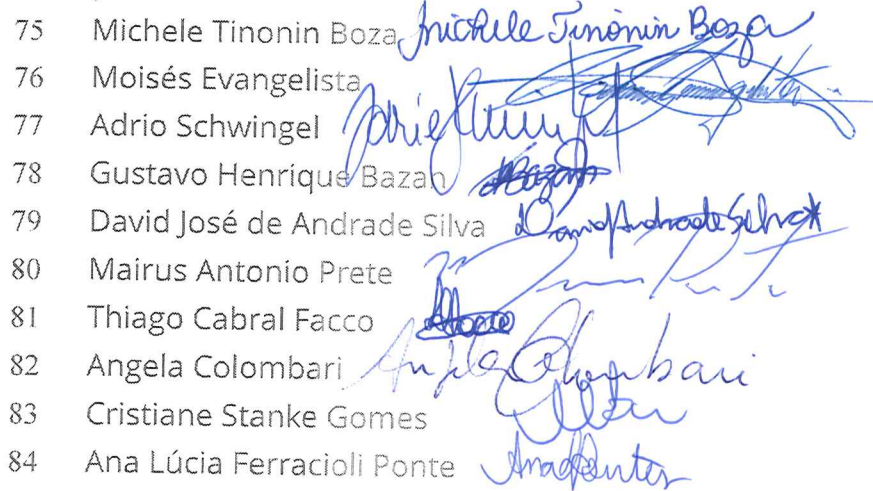 75 Michele Tinonin Boza Michele Tinonin Boza
76 Moisés Evangelista
77 Adrio Schwingel
78 Gustavo Henrique Bazan Bazan
79 David José de Andrade Silva David Andrade Silva
80 Mairus Antonio Prete
81 Thiago Cabral Facco
82 Angela Colombari Angela Colombari
83 Cristiane Stanke Gomes
84 Ana Lúcia Ferracioli Ponte